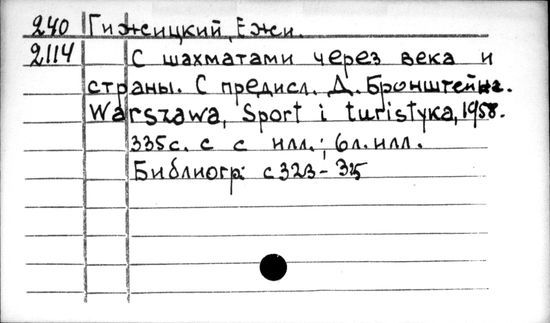 240 Гижицкий, Ежи.
2114 С шахматами через века и
страны. С предисл. Д. Бронштейна.
Warszawa, Sport i turistyka, 1958.
335с. с илл.; 6л. илл.
Библиогр: с 323-325